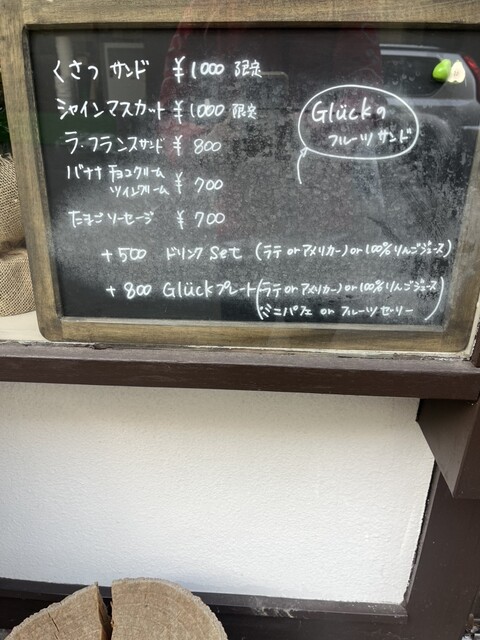 くさつ サンド ¥1000 限定
シャインマスカット ¥1000 限定
ラ・フランスサンド ¥800
バナナ チョコクリーム
ツインクリーム ¥700
たまごソーセージ ¥700
+500 ドリンク Set (ラテ or アメリカーノ or 100%りんごジュース)
+800 Glückプレート(ラテ or アメリカーノ or 100%りんごジュース
ミニパフェ or フルーツゼリー)
Glückの
フルーツサンド